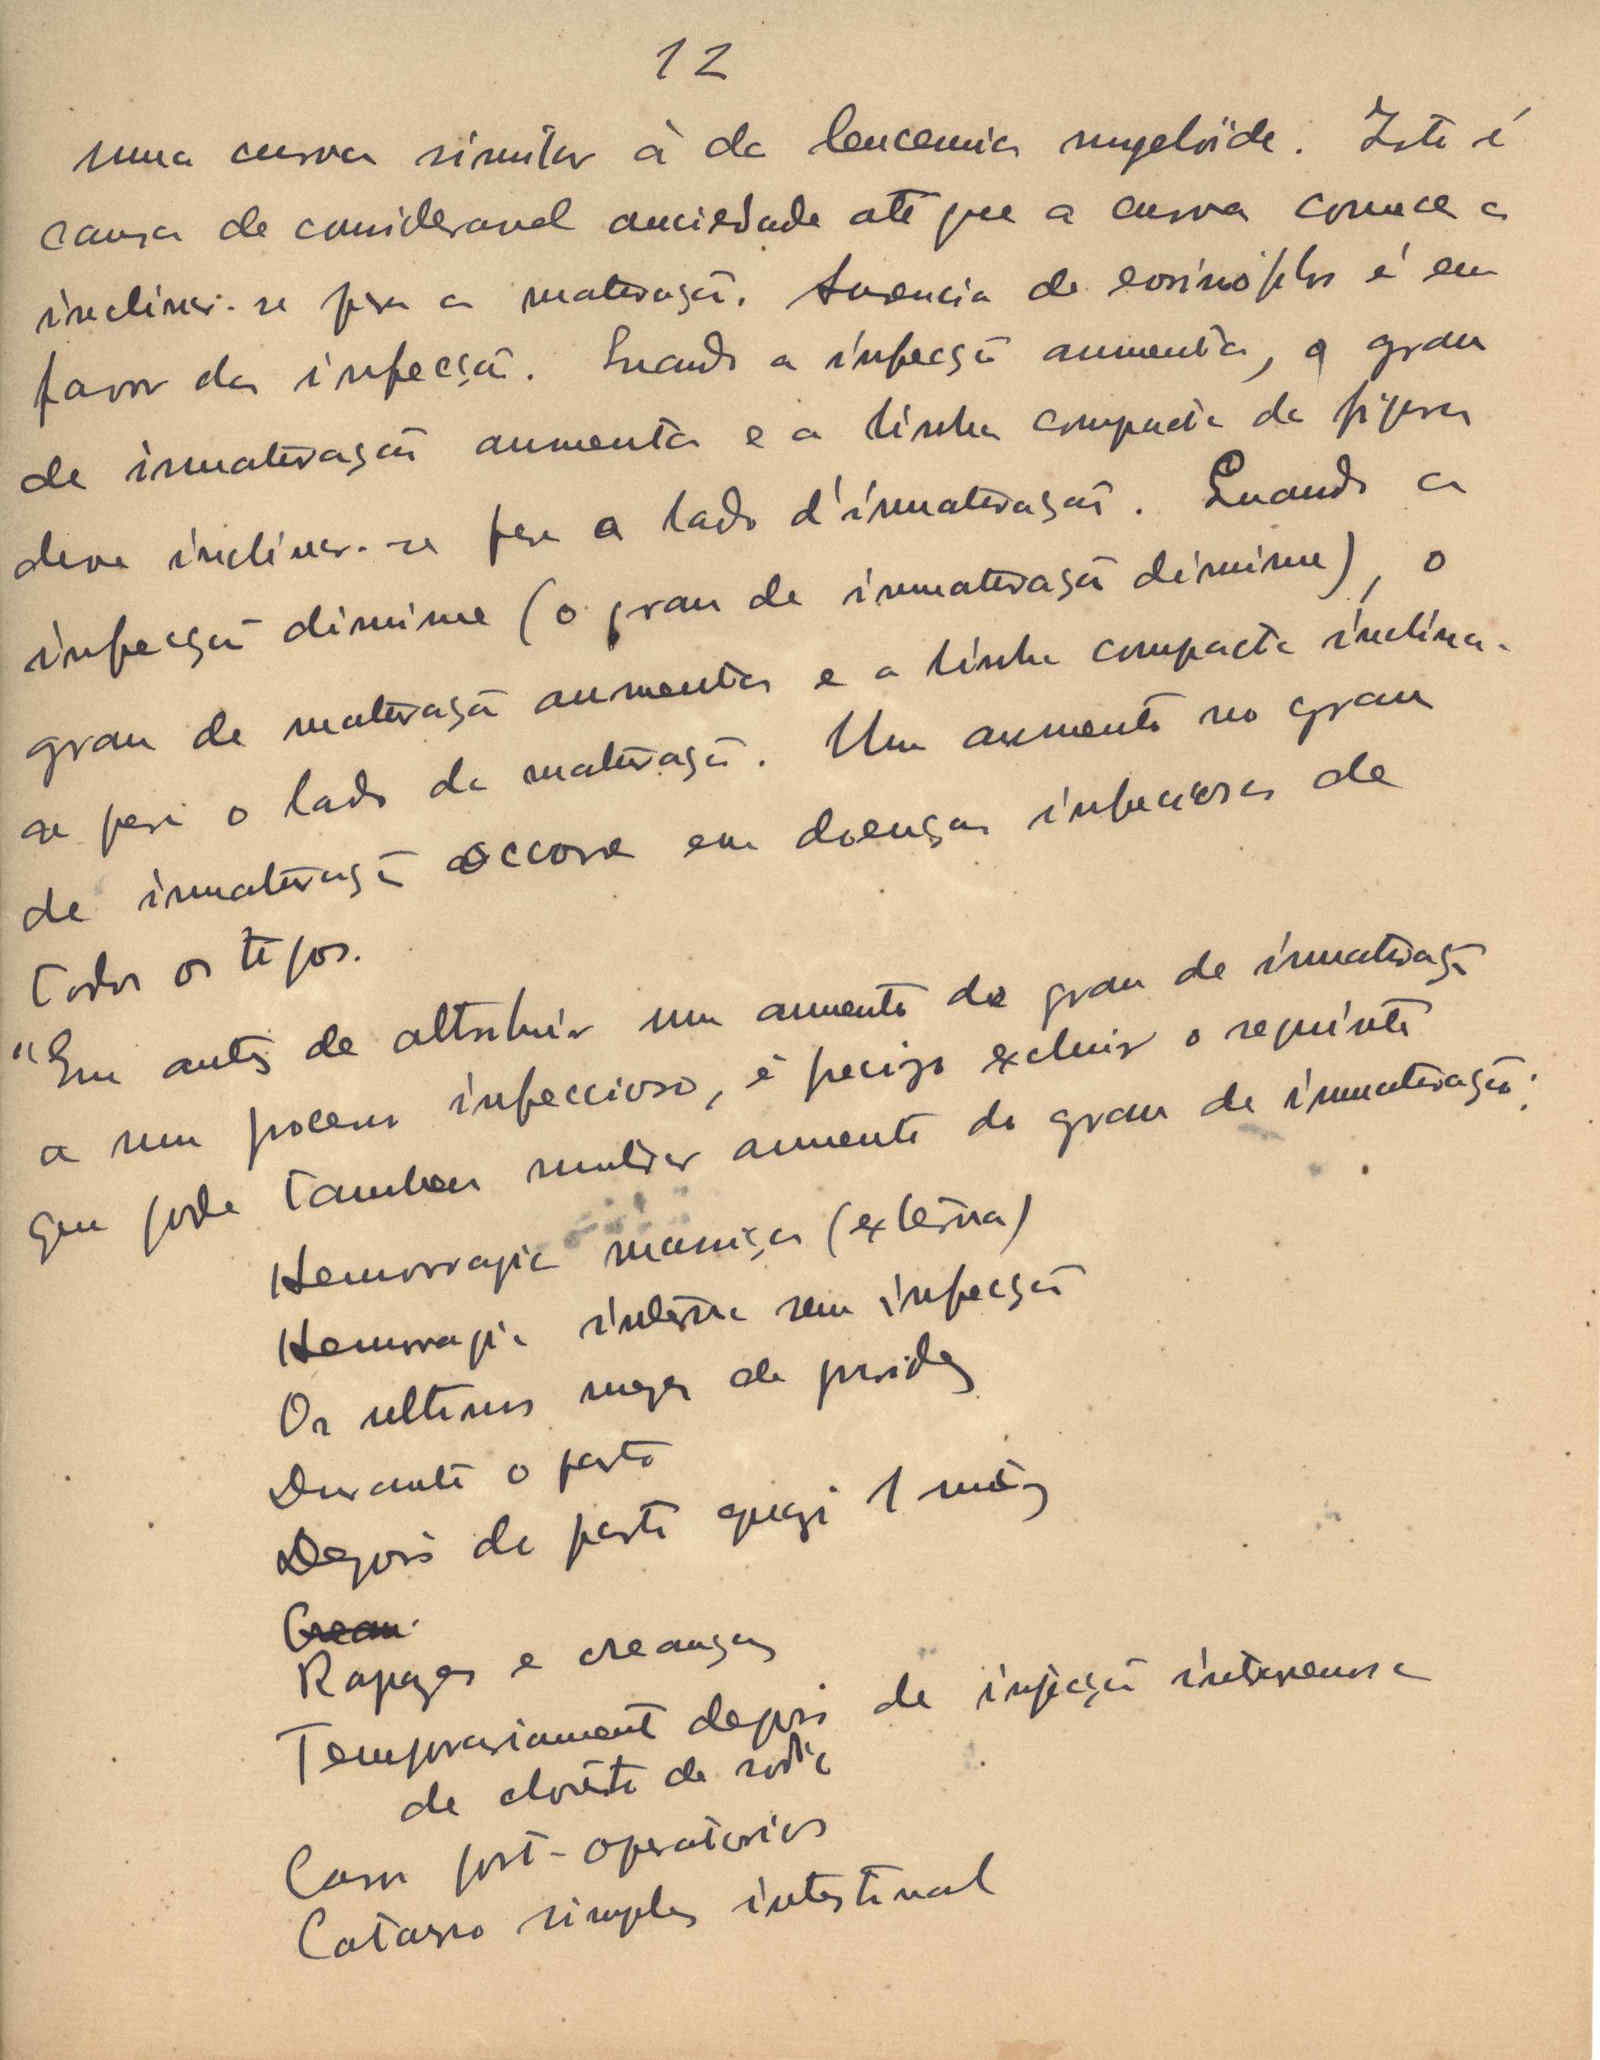 12
uma curva similar à da leucemia myeloïde. Isto é
causa de consideravel anciedade até que a curva comece a
inclinar-se para a maturação. Ausencia de eosinóphilos é em
favor da infecção. Quando a infecção aumenta, o grau
de immaturação aumenta e a linha compacta da figura
deve inclinar-se para o lado d'immaturação. Quando a
infecção diminue (o grau de immaturação diminue), o
grau de maturação aumenta e a linha compacta inclina-
se para o lado da maturação. Um aumento no grau
de immaturação occore em doenças infeciosas de
todos os tipos.
"Em antes de attribuir um aumento do grau de immaturação
a um processo infeccioso, é precizo excluir o seguinte
que pode tambem mostrar aumento do grau de immaturação:
Hemorragia massiça (externa)
Hemorragia interna sem infecção
Os ultimos mezes da gravidez
Durante o parto
Depois do parto quazi 1 mêz
Crean
Rapazes e creanças
Temporariamente depois de injecção intravenosa
de cloreto de sodio
Casos post-operatorios
Catarro simples intestinal